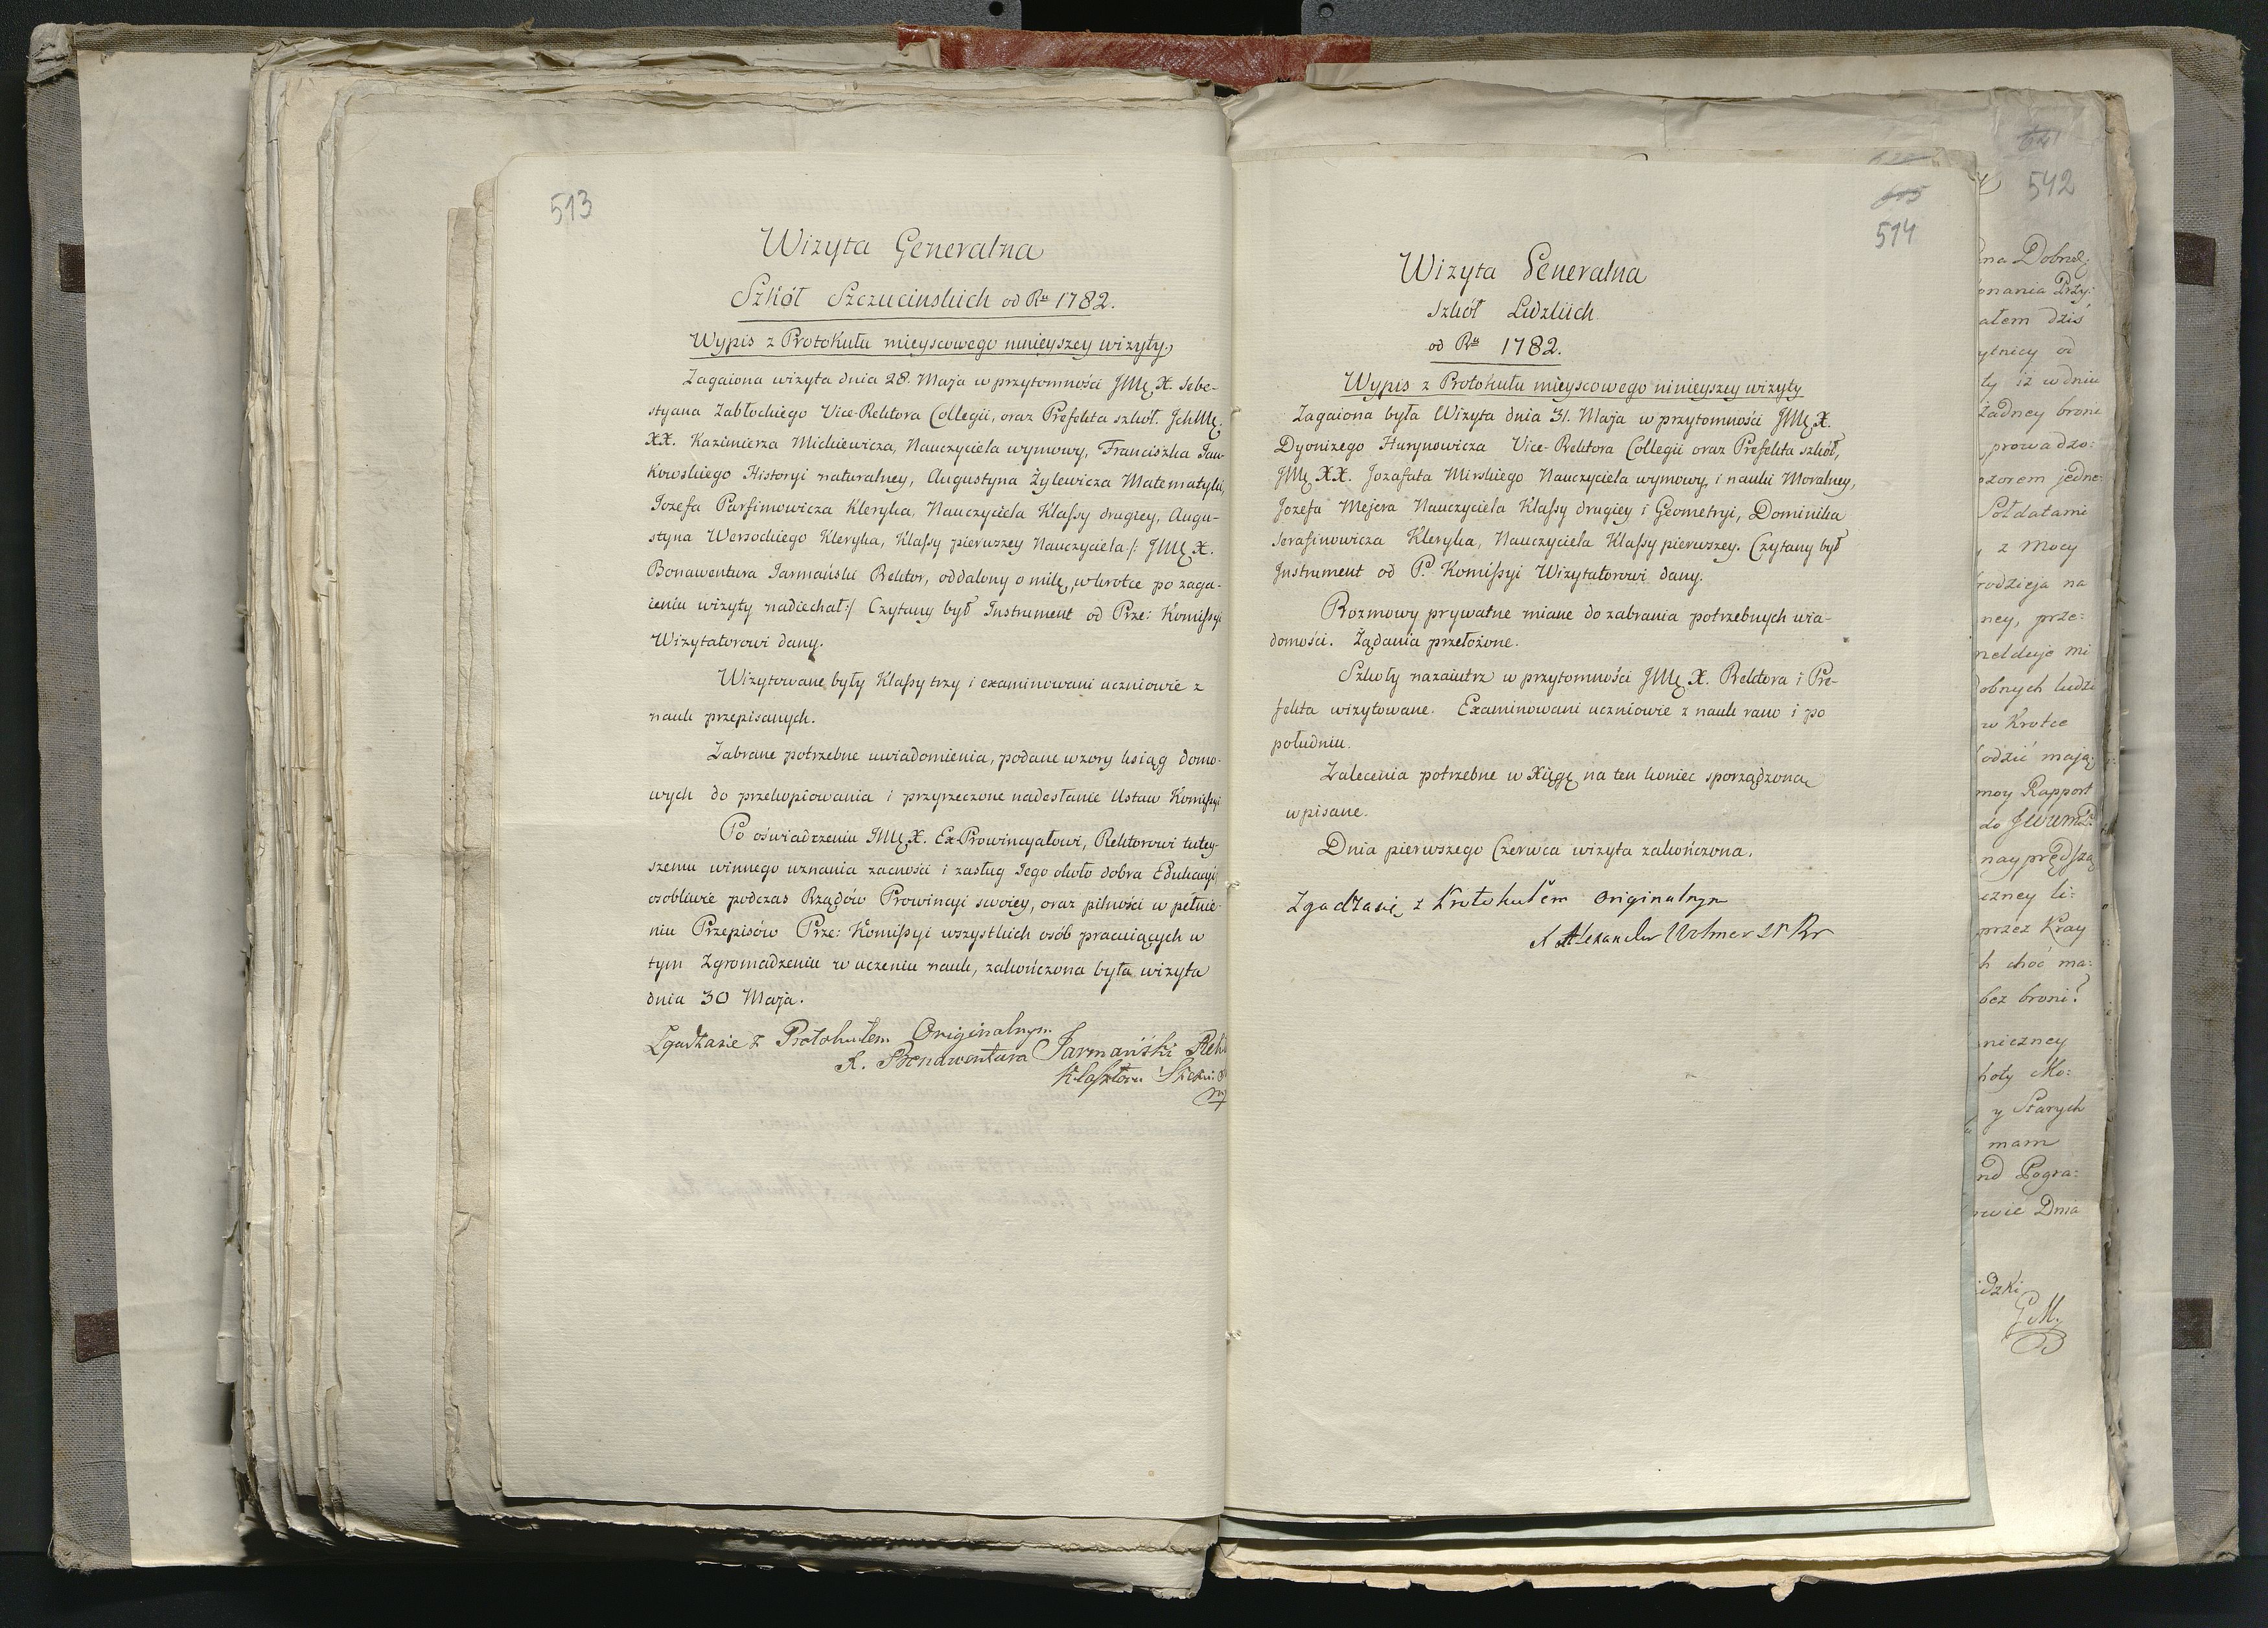 513
Wizyta Generalna
Szkół Szczucinskich od Ru 1782.
Wypis z Protokułu mieyscowego ninieyszey wizyty.
Zagaiona wizyta dnia 28. Maja w przytomności JMę X. Seba-
styana Zabłockiego Vice-Rektora Collegii, oraz Prefekta szkół. JchMę.
XX. Kazimierza Mickiewicza, Nauczyciela wymowy, Franciszka Jan-
kowskiego Historyi naturalney, Augustyna Żylewicza Matematyki,
Jozefa Parfimowicza Kleryka, Nauczyciela Klaſsy drugiey, Augu-
styna Wersockiego Kleryka, Klaſsy pierwszey Nauczyciela /: JMę X.
Bonawentura Jarmański Rektor, oddalony o milę, wkrotce po zaga-
ieniu wizyty nadiechał :/ Czytany był Instrument od Prze: Komiſsyi
Wizytatorowi dany.
Wizytowane były Klaſsy trzy i examinowani uczniowie z
nauk przepisanych.
Zabrane potrzebne uwiadomienia, podane wzory ksiąg domo-
wych do przekopiowania i przyrzeczone nadesłanie Ustaw Komiſsyi
Po oświadczeniu JMę X. Ex-Prowincyałowi, Rektorowi tutey-
szemu winnego uznania zacności i zasług Jego około dobra Edukacyi
osobliwie podczas Rządów Prowincyi swoiey, oraz pilności w pełnie-
niu Przepisów Prze: Komiſsyi wszystkich osób pracuiących w
tym Zgromadzeniu w uczeniu nauk, zakończona była wizyta
dnia 30 Maja.
Zgadzasie z Protokułem Originalnym
X. Bonawentura Jarmański Rek
Klasztoru
514
Wizyta Generalna
Szkół Lidzkich
od Ru 1782.
Wypis z Protokułu mieyscowego ninieyszey wizyty
Zagaiona była Wizyta dnia 31. Maja w przytomności JMę X.
Dyonizego Hurynowicza Vice-Rektora Collegii oraz Prefekta szkół,
JMę XX. Jozafata Mirskiego Nauczyciela wymowy, i nauki Moralney,
Jozefa Mejera Nauczyciela Klaſsy drugiey i Geometryi, Dominika
Serafinowicza Kleryka, Nauczyciela Klaſsy pierwszey. Czytany był
Instrument od P. Komiſsyi Wizytatorowi dany.
Rozmowy prywatne miane do zabrania potrzebnych wia-
domości. Żądania przełożone.
Szkoły nazaiutrz w przytomności JMę X. Rektora i Pre-
fekta wizytowane. Examinowani uczniowie z nauk rano i po
południu.
Zalecenia potrzebne w Xięgę na ten koniec sporządzoną
wpisane.
Dnia pierwszego Czerwca wizyta zakończona.
Zgadzasię z Protokułem Originalnym
X Alexander
542
na Dobrod:
onania Przy:
ałem dziś
ytnicy od
ty iż w dniu
żadney broni
prowadzo:
ozorem jedne:
Sołdatami
z Mocy
rodzieja na
ney, prze:
melduje mi
obnych ludzi
w Krotce
odzić mają:
moy Rapport
do
nayprędszą
czney li:
przez Kray
h choć ma:
bez broni?
niczney
hoty Mo:
y Starych
mam
nd Pogra:
wie Dnia
idzki
GM.